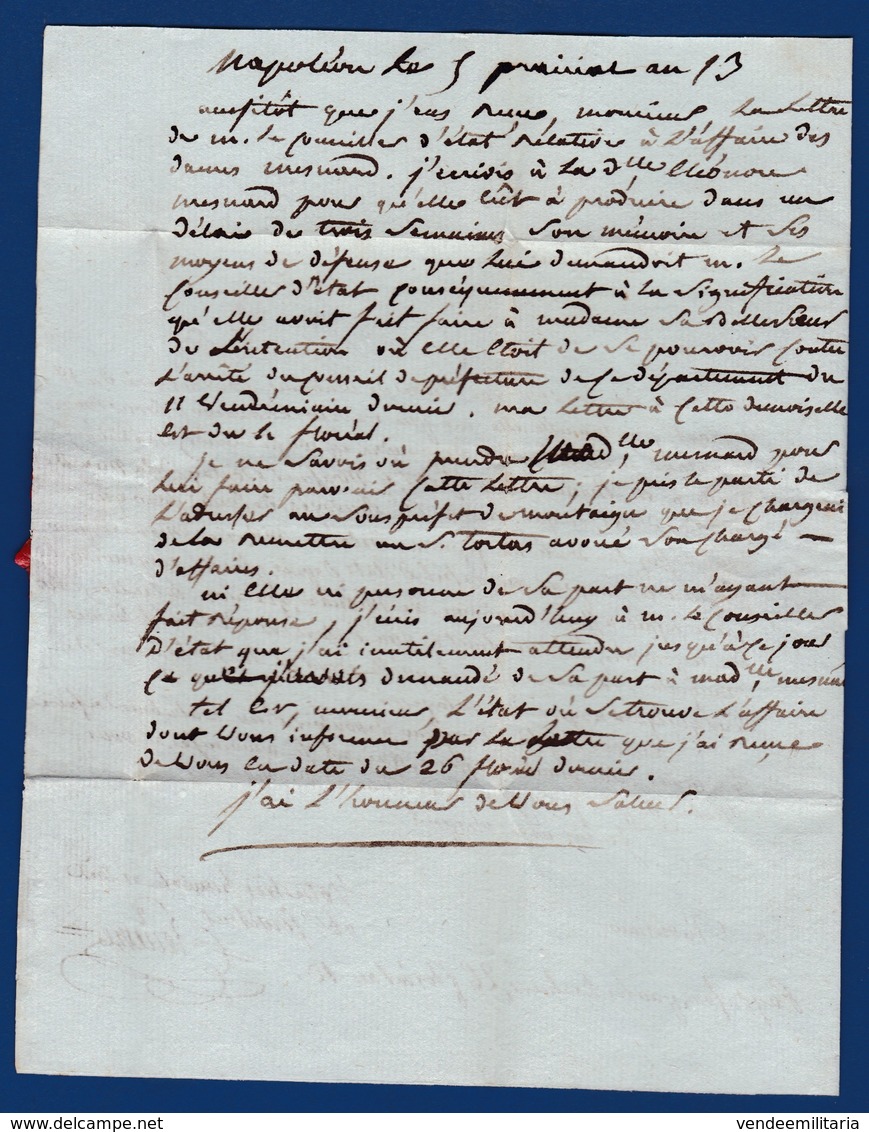 Napoléon le 5 prairial an 13
aussitôt que j'eus reçue, monsieur la lettre
de m. le conseiller d'état relative à l'affaire des
dames mesnard. j'ecrivis à la dlle Eléonore
mesnard pour qu'elle eût à produire dans un
délai de trois semaines son mémoire et ses
moyens de défense que lui demandoit m. le
conseiller d'état conséquemment à la signification
qu'elle avoit fait faire à madame sa belle soeur
de l'intention où elle étoit de se pourvoir contre
l'arrêté du conseil de préfecture de ce département du
11 vendémiaire dernier. ma lettre à cette demoiselle
est du 1e floréal.
je ne savois où prendre madlle, mesnard pour
lui faire parvenir cette lettre; je pris le parti de
l'adresser au sous préfet de montaigu que je chargeai
de la remettre au Sr. tortas avoué son chargé
d'affaires.
ni elle ni personne de sa part ne m'ayant
fait réponse, j'écris aujourd'huy à m. le conseiller
d'état que j'ai inutilement attendu jusqu'à ce jour
ce qu'il m'avoit demandé de sa part à madlle, mesnard
tel est, monsieur, l'état où se trouve l'affaire
dont vous informe par la lettre que j'ai reçue
de vous en date du 26 floréal dernier.
j'ai l'honneur de vous saluer.
vendeemilitaria